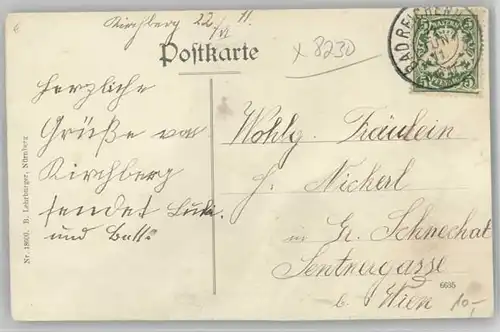 Kirchberg 22/VI 11.
Postkarte
x 8230
BAD REICHENH
BAYERN
5 5
Herzliche
Grüße von
Kirchberg
sendet
und
Wohlg. Fräulein
H. Nickerl
in Gr. Schwechat
Sentnergasse
b. Wien
Nr. 18600. B. Lehrburger, Nürnberg
6685
10,-